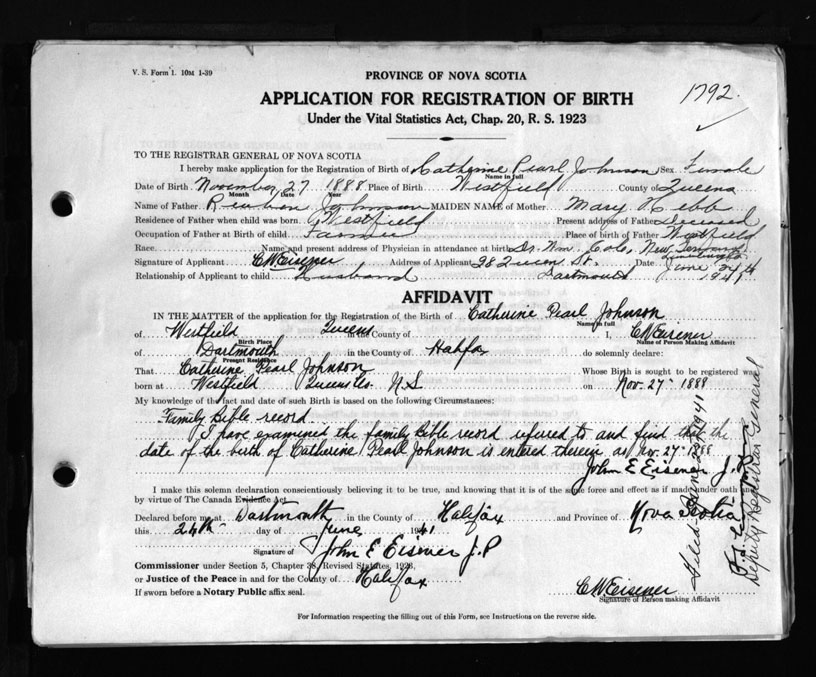 V. S. Form 1. 10M 1-39
PROVINCE OF NOVA SCOTIA
1792.
APPLICATION FOR REGISTRATION OF BIRTH
Under the Vital Statistics Act, Chap. 20, R. S. 1923
TO THE REGISTRAR GENERAL OF NOVA SCOTIA
I hereby make application for the Registration of Birth of Catherine Pearl Johnson Sex Female
Name in full
Date of Birth November 27 1888 Place of Birth Westfield County of Queens
Month Date Year
Name of Father Reuben Johnson MAIDEN NAME of Mother Mary Hebb
Residence of Father when child was born Westfield Present address of Father Deceased
Occupation of Father at Birth of child Farmer Place of birth of Father Westfield
Race Name and present address of Physician in attendance at birth Dr. Wm. Cole, New
Signature of Applicant C W Eisener Address of Applicant 98 Queen St. Date June 24
Relationship of Applicant to child Husband Dartmouth 1941
AFFIDAVIT
IN THE MATTER of the application for the Registration of the Birth of Catherine Pearl Johnson
Name in full
of Westfield Queens in the County of I, C W Eisener
Birth Place Name of Person Making Affidavit
of Dartmouth in the County of Halifax do solemnly declare:
Present Residence
That Catherine Pearl Johnson Whose Birth is sought to be registered was
born at Westfield Queens Co. N.S on Nov. 27 - 1888
My knowledge of the fact and date of such Birth is based on the following Circumstances:
Family Bible record.
I have examined the family Bible record referred to and find that the
date of the birth of Catherine Pearl Johnson is entered therein as Nov. 27 - 1888
John E Eisener J.P.
I make this solemn declaration conscientiously believing it to be true, and knowing that it is of the same force and effect as if made under oath and
by virtue of The Canada Evidence Act.
Declared before me at Dartmouth in the County of Halifax and Province of Nova Scotia
this 24th day of June 1941
Signature of John E Eisener J.P
Commissioner under Section 5, Chapter 38, Revised Statutes, 1923.
or Justice of the Peace in and for the County of Halifax
If sworn before a Notary Public affix seal.
C W Eisener
Signature of Person making Affidavit
For Information respecting the filling out of this Form, see Instructions on the reverse side.
Filed - June 1941
Deputy Registrar General